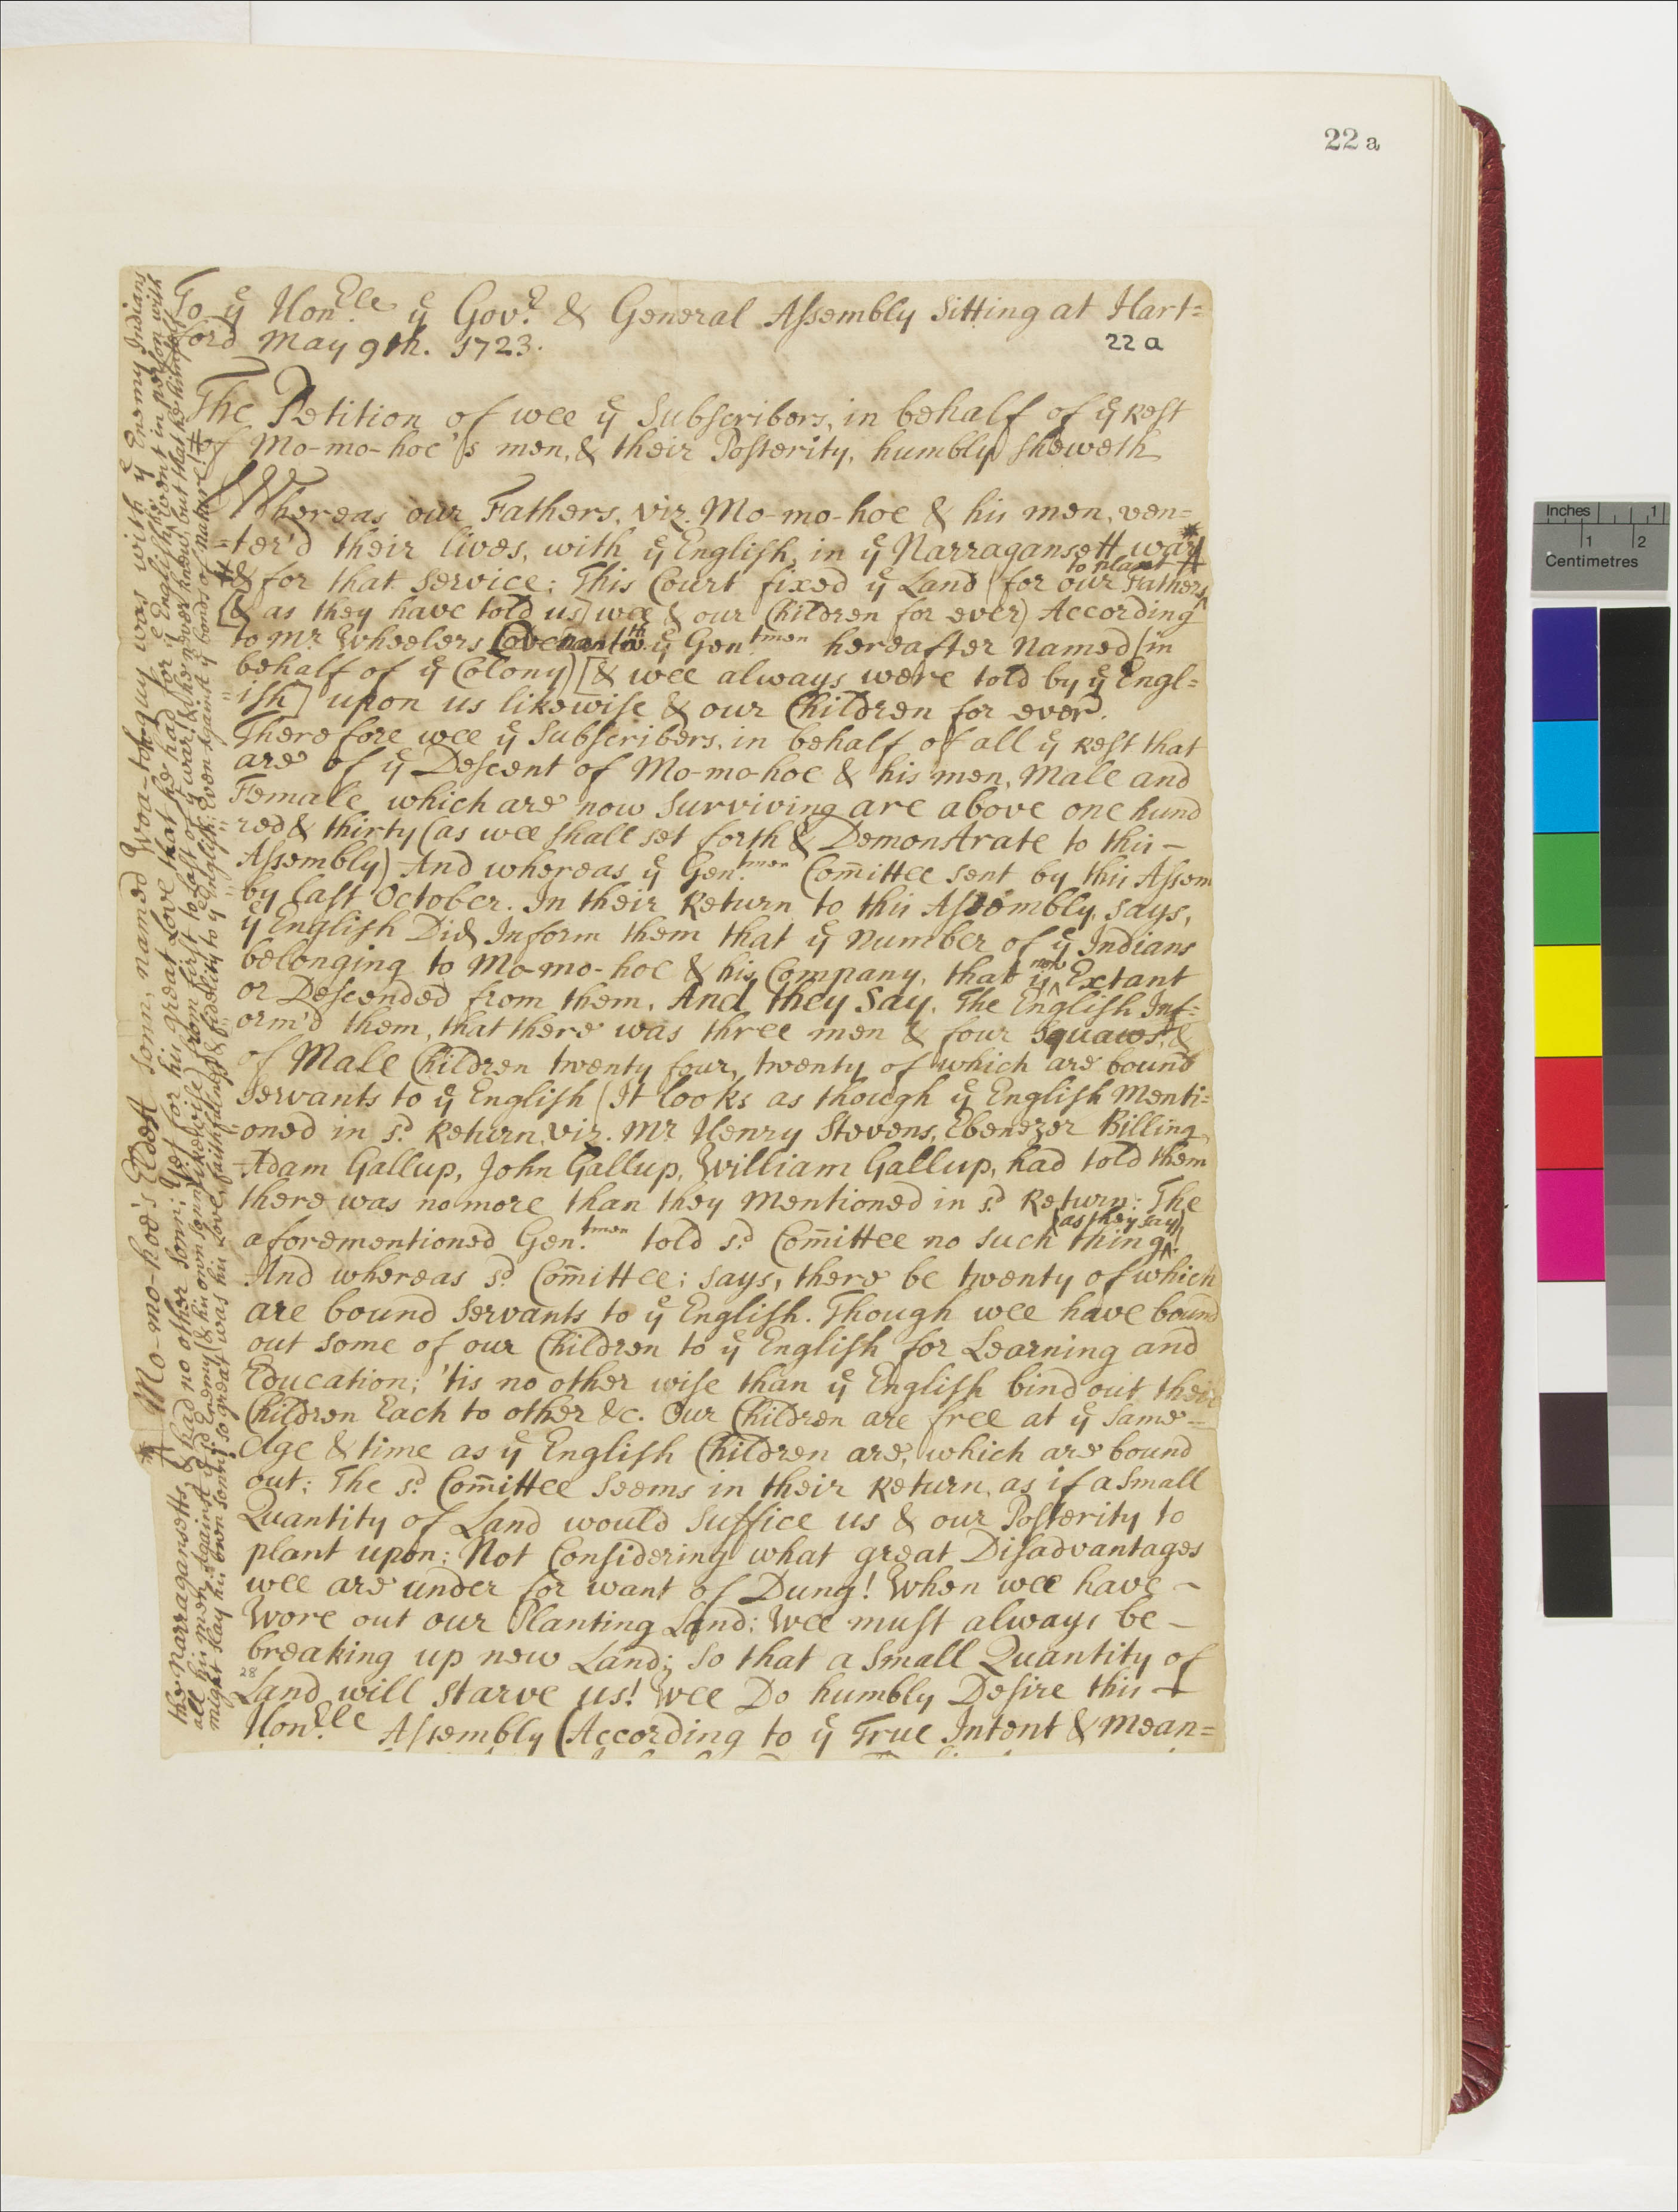 22 a
To yᵉ Honᵇˡᵉ yᵉ Govʳ & General Assembly Sitting at Hart=
ford May 9th. 1723.
22 a
The Petition of wee yᵉ Subscribers, in behalf of yᵉ Rest
of Mo-mo-hoe's men, & their Posterity, humbly Sheweth
Whereas our Fathers, viz. Mo-mo-hoe & his men, ven=
=ter'd their lives, with yᵉ English, in yᵉ Narragansett war *
to plant
& for that Service; This Court fixed yᵉ Land (for our Fathers
[& as they have told us] wee & our Children for ever) According
to Mr. Wheelers Covenant wᵗʰ yᵉ Genᵗᵐᵉⁿ hereafter Named [in
behalf of yᵉ Colony) [& wee always were told by yᵉ Engl=
=ish] upon us likewise & our Children for ever.
Therefore wee yᵉ Subscribers, in behalf of all yᵉ Rest that
are of yᵉ Descent of Mo-mo-hoe & his men, Male and
Female, which are now Surviving are above one hund
=red & thirty (as wee shall set forth & Demonstrate to this -
Assembly) And whereas yᵉ Genᵗᵐᵉⁿ Com̄ittee sent by this Assem
=by last October. In their Return to this Assembly, says,
yᵉ English Did Inform them that yᵉ Number of yᵉ Indians
belonging to Mo-mo-hoe & his Company, that is now Extant
or Descended from them. And they Say. The English Inf=
orm'd them, that there was three men & four Squaws, &
of Male Children twenty four, twenty of which are bound
Servants to yᵉ English (It looks as though yᵉ English Menti=
=oned in sᵈ Return, viz. Mr Henry Stevens, Ebenezer Billing,
Adam Gallup, John Gallup, William Gallup, had told them
there was no more than they Mentioned in sᵈ Return: The
aforementioned Genᵗᵐᵉⁿ told sᵈ Com̄ittee no such thing (as they say)
And whereas sᵈ Com̄ittee; says, there be twenty of which
are bound Servants to yᵉ English. Though wee have bound
out some of our Children to yᵉ English for Learning and
Education; 'tis no other wise than yᵉ English bind out their
Children Each to other &c. Our Children are free at yᵉ same -
Age & time as yᵉ English Children are, which are bound
out; The sᵈ Com̄ittee Seems in their Return, as if a Small
Quantity of Land would Suffice us & our Posterity to
plant upon; Not Considering what great Disadvantages
wee are under for want of Dung! When wee have -
Wore out our Planting Land; Wee must always be -
breaking up new Land; so that a Small Quantity of
28
Land will starve us! Wee Do humbly Desire this
Honᵇˡᵉ Assembly (According to yᵉ True Intent & Mean=
* Mo-mo-hoe's Eldest sonn, named Woa-toh-quy was with yᵉ Enemy Indians
the Narragansetts & had no other sonn; Yet for his great Love that he had for yᵉ English, he went in person with
all his men against yᵉ sᵈ Enemy (& his own sonn likewise) from first to last of yᵉ war; & he never knew, but that he himself
might slay his own sonn; so great was his Love, faithfulness & fidelity to yᵉ English: Even against yᵉ bonds of nature!
Inches 1
1 2
Centimetres